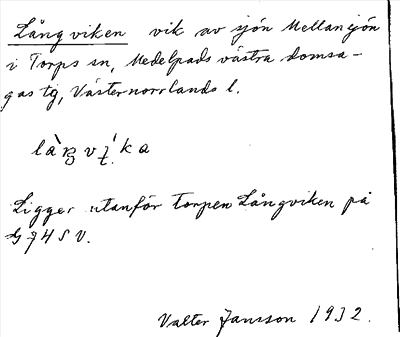 Långviken vik av sjön Mellansjön
i Torps sn, Medelpads västra domsa-
gas tg, Västernorrlands l.
Ligger utanför torpen Långviken på
G74SV.
Valter Jansson 1932.